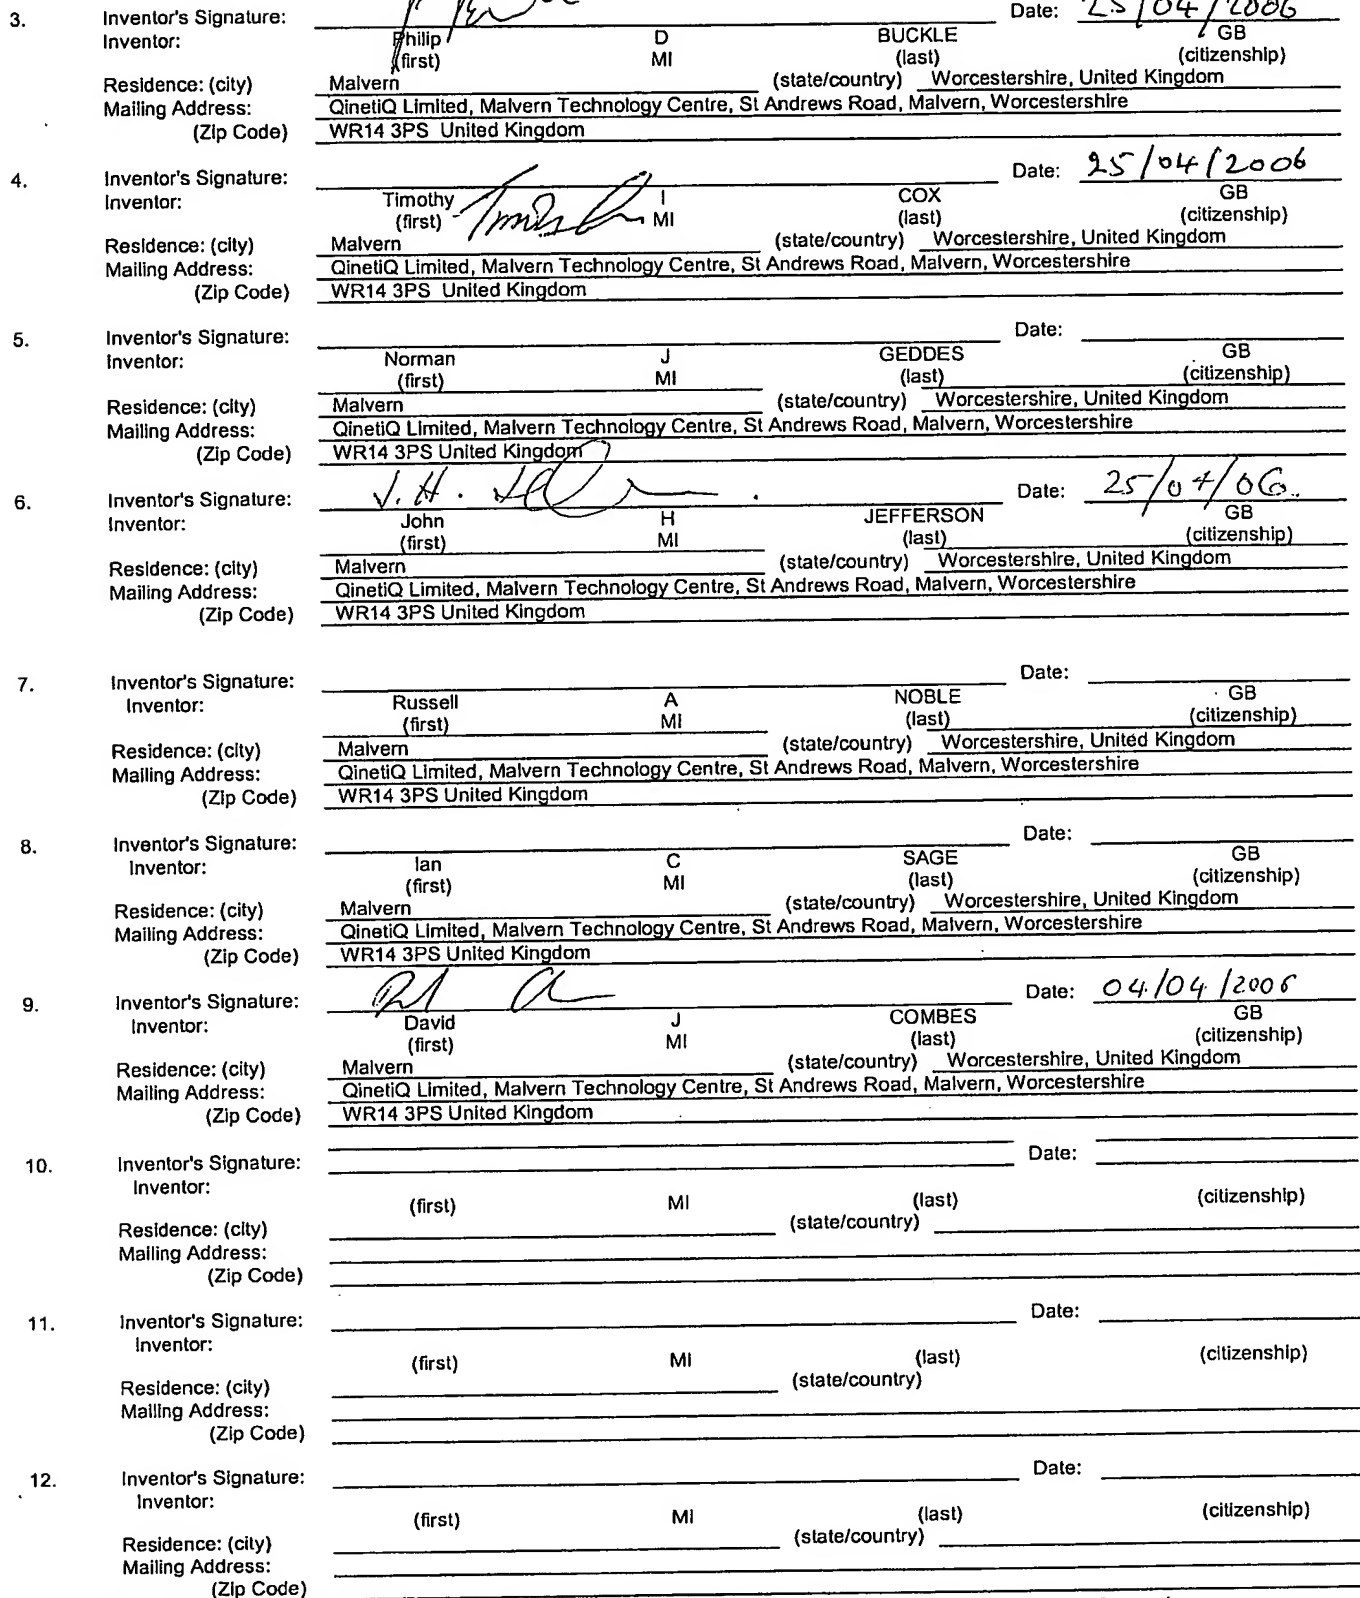 3. Inventor's Signature: Date: 25/04/2006
Inventor: Philip D BUCKLE GB
(first) MI (last) (citizenship)
Residence: (city) Malvern (state/country) Worcestershire, United Kingdom
Mailing Address: QinetiQ Limited, Malvern Technology Centre, St Andrews Road, Malvern, Worcestershire
(Zip Code) WR14 3PS United Kingdom
4. Inventor's Signature: Date: 25/04/2006
Inventor: Timothy I COX GB
(first) MI (last) (citizenship)
Residence: (city) Malvern (state/country) Worcestershire, United Kingdom
Mailing Address: QinetiQ Limited, Malvern Technology Centre, St Andrews Road, Malvern, Worcestershire
(Zip Code) WR14 3PS United Kingdom
5. Inventor's Signature: Date:
Inventor: Norman J GEDDES GB
(first) MI (last) (citizenship)
Residence: (city) Malvern (state/country) Worcestershire, United Kingdom
Mailing Address: QinetiQ Limited, Malvern Technology Centre, St Andrews Road, Malvern, Worcestershire
(Zip Code) WR14 3PS United Kingdom
6. Inventor's Signature: J. H. Date: 25/04/06
Inventor: John H JEFFERSON GB
(first) MI (last) (citizenship)
Residence: (city) Malvern (state/country) Worcestershire, United Kingdom
Mailing Address: QinetiQ Limited, Malvern Technology Centre, St Andrews Road, Malvern, Worcestershire
(Zip Code) WR14 3PS United Kingdom
7. Inventor's Signature: Date:
Inventor: Russell A NOBLE GB
(first) MI (last) (citizenship)
Residence: (city) Malvern (state/country) Worcestershire, United Kingdom
Mailing Address: QinetiQ Limited, Malvern Technology Centre, St Andrews Road, Malvern, Worcestershire
(Zip Code) WR14 3PS United Kingdom
8. Inventor's Signature: Date:
Inventor: Ian C SAGE GB
(first) MI (last) (citizenship)
Residence: (city) Malvern (state/country) Worcestershire, United Kingdom
Mailing Address: QinetiQ Limited, Malvern Technology Centre, St Andrews Road, Malvern, Worcestershire
(Zip Code) WR14 3PS United Kingdom
9. Inventor's Signature: Date: 04/04/2006
Inventor: David J COMBES GB
(first) MI (last) (citizenship)
Residence: (city) Malvern (state/country) Worcestershire, United Kingdom
Mailing Address: QinetiQ Limited, Malvern Technology Centre, St Andrews Road, Malvern, Worcestershire
(Zip Code) WR14 3PS United Kingdom
10. Inventor's Signature: Date:
Inventor:
(first) MI (last) (citizenship)
Residence: (city) (state/country)
Mailing Address:
(Zip Code)
11. Inventor's Signature: Date:
Inventor:
(first) MI (last) (citizenship)
Residence: (city) (state/country)
Mailing Address:
(Zip Code)
12. Inventor's Signature: Date:
Inventor:
(first) MI (last) (citizenship)
Residence: (city) (state/country)
Mailing Address:
(Zip Code)